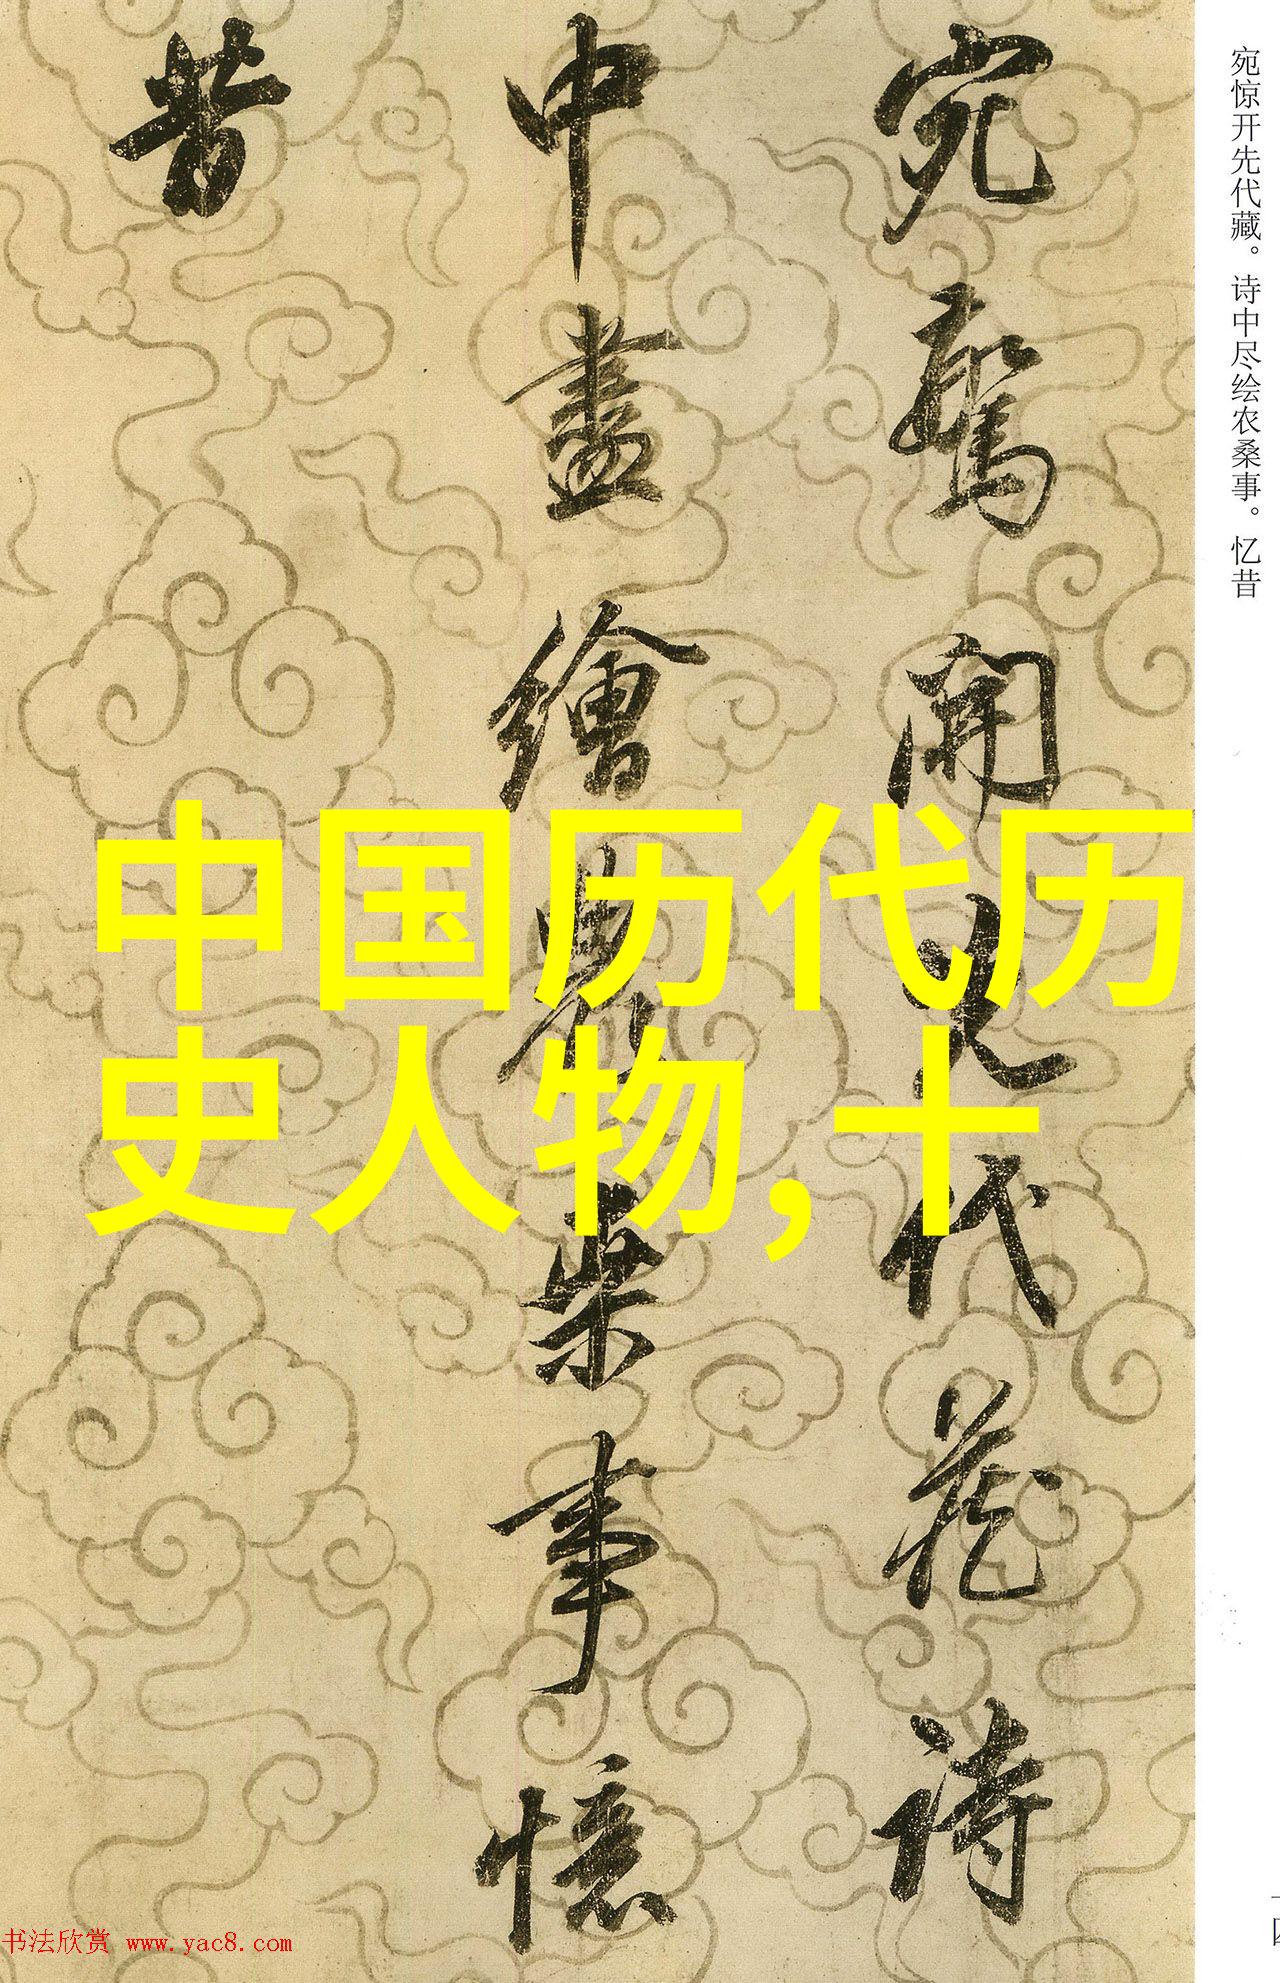 宛驚開先代藏詩
中盡繪農桒事憶
昔
宛惊开先代藏。诗中尽绘农桑事。忆昔
中国历代历
史人物,十
书法欣赏 www.yac8.com